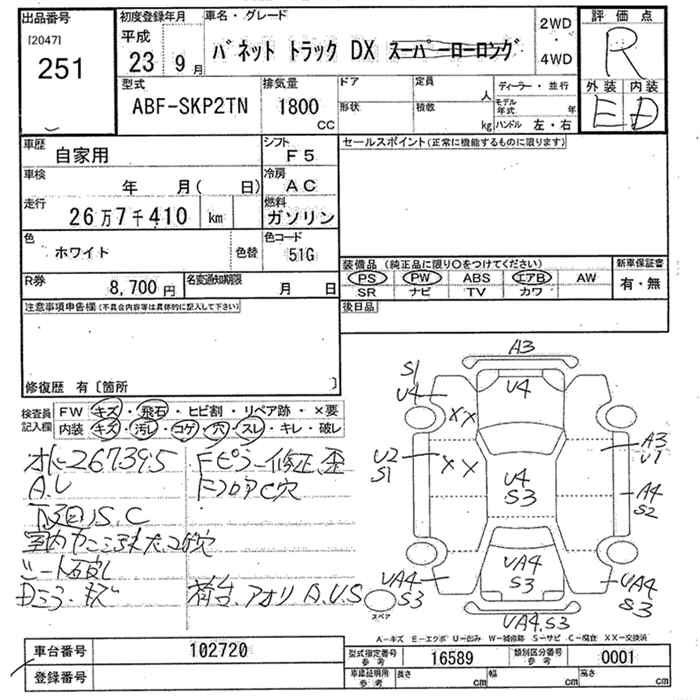 出品番号
[2047]
251
初度登録年月
平成
23 9月
車名・グレード
バネット トラック DX スーパーローロング
2WD
・
4WD
評価点
R
外装 内装
E D
型式
ABF-SKP2TN
排気量
1800
CC
ドア
形状
定員
人
積載
kg
ディーラー・並行
モデル年式
年
ハンドル 左・右
車歴
自家用
シフト
F5
車検
年 月( 日)
冷房
AC
走行
26万7千410 km
燃料
ガソリン
色
ホワイト
色替
色コード
51G
R券
8,700円
名変通知期限
月 日
セールスポイント(正常に機能するものに限ります)
装備品(純正品に限り○をつけてください)
PS PW ABS エアB AW
SR ナビ TV カワ
新車保証書
有・無
後日品
注意事項申告欄(不具合内容等は具体的に記入して下さい)
修復歴 有〔箇所 〕
検査員
記入欄
FW キズ・飛石・ヒビ割・リペア跡・×要
内装 キズ・汚レ・コゲ・穴・スレ・キレ・破レ
267395
A.U
下回りS.C
シート破れ
Fピラー修正、歪
FフロアC穴
荷台、アオリ A.U.S
A3
S1
U4
U4
XX
U2
S1
XX
U4
S3
A3
U1
A4
S2
UA4
S3
UA4
S3
UA4
S3
UA4.S3
スペア
A-キズ E-エクボ U-凹み W-補修跡 S-サビ C-腐食 XX-交換済
車台番号
102720
登録番号
型式指定番号
参考
16589
類別区分番号
参考
0001
車庫証明用
参考
長さ
cm
幅
cm
高さ
cm